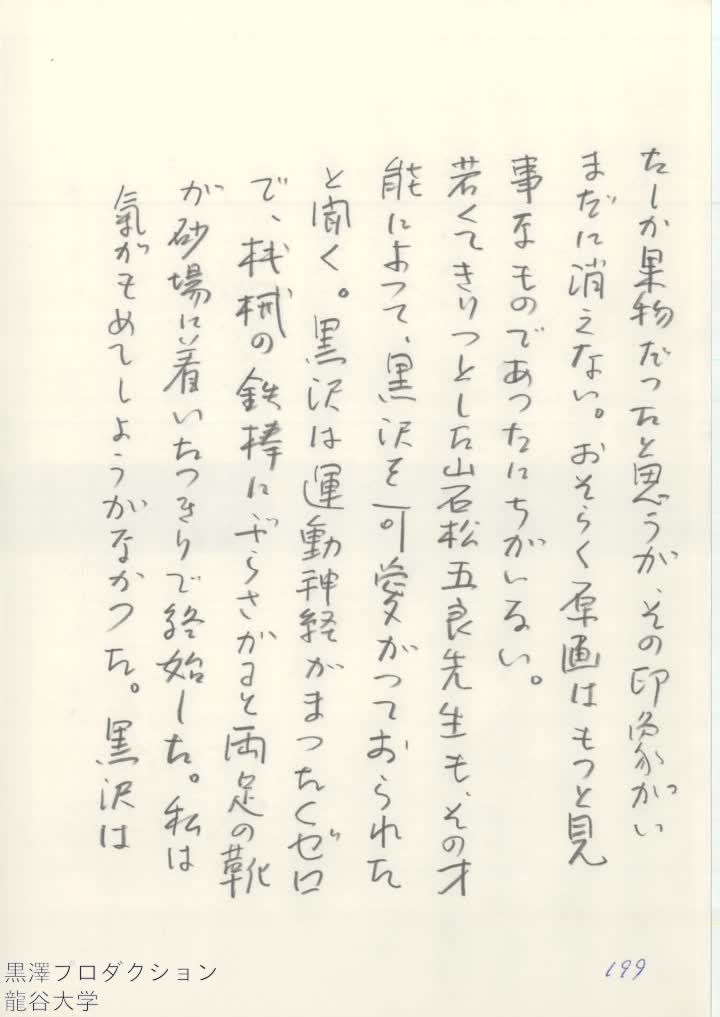 たしか果物だつたと思うが、その印象がい
まだに消えない。おそらく原画はもつと見
事なものであつたにちがいない。
若くてきりつとした山石松五良先生も、その才
能によつて、黒沢を可愛がつておられた
と聞く。黒沢は運動神経がまつたくゼロ
で、机械の鉄棒にぶらさがると両足の靴
が砂場に着いたつきりで終始した。私は
氣がもめてしようがなかつた。黒沢は
199
黒澤プロダクション
龍谷大学